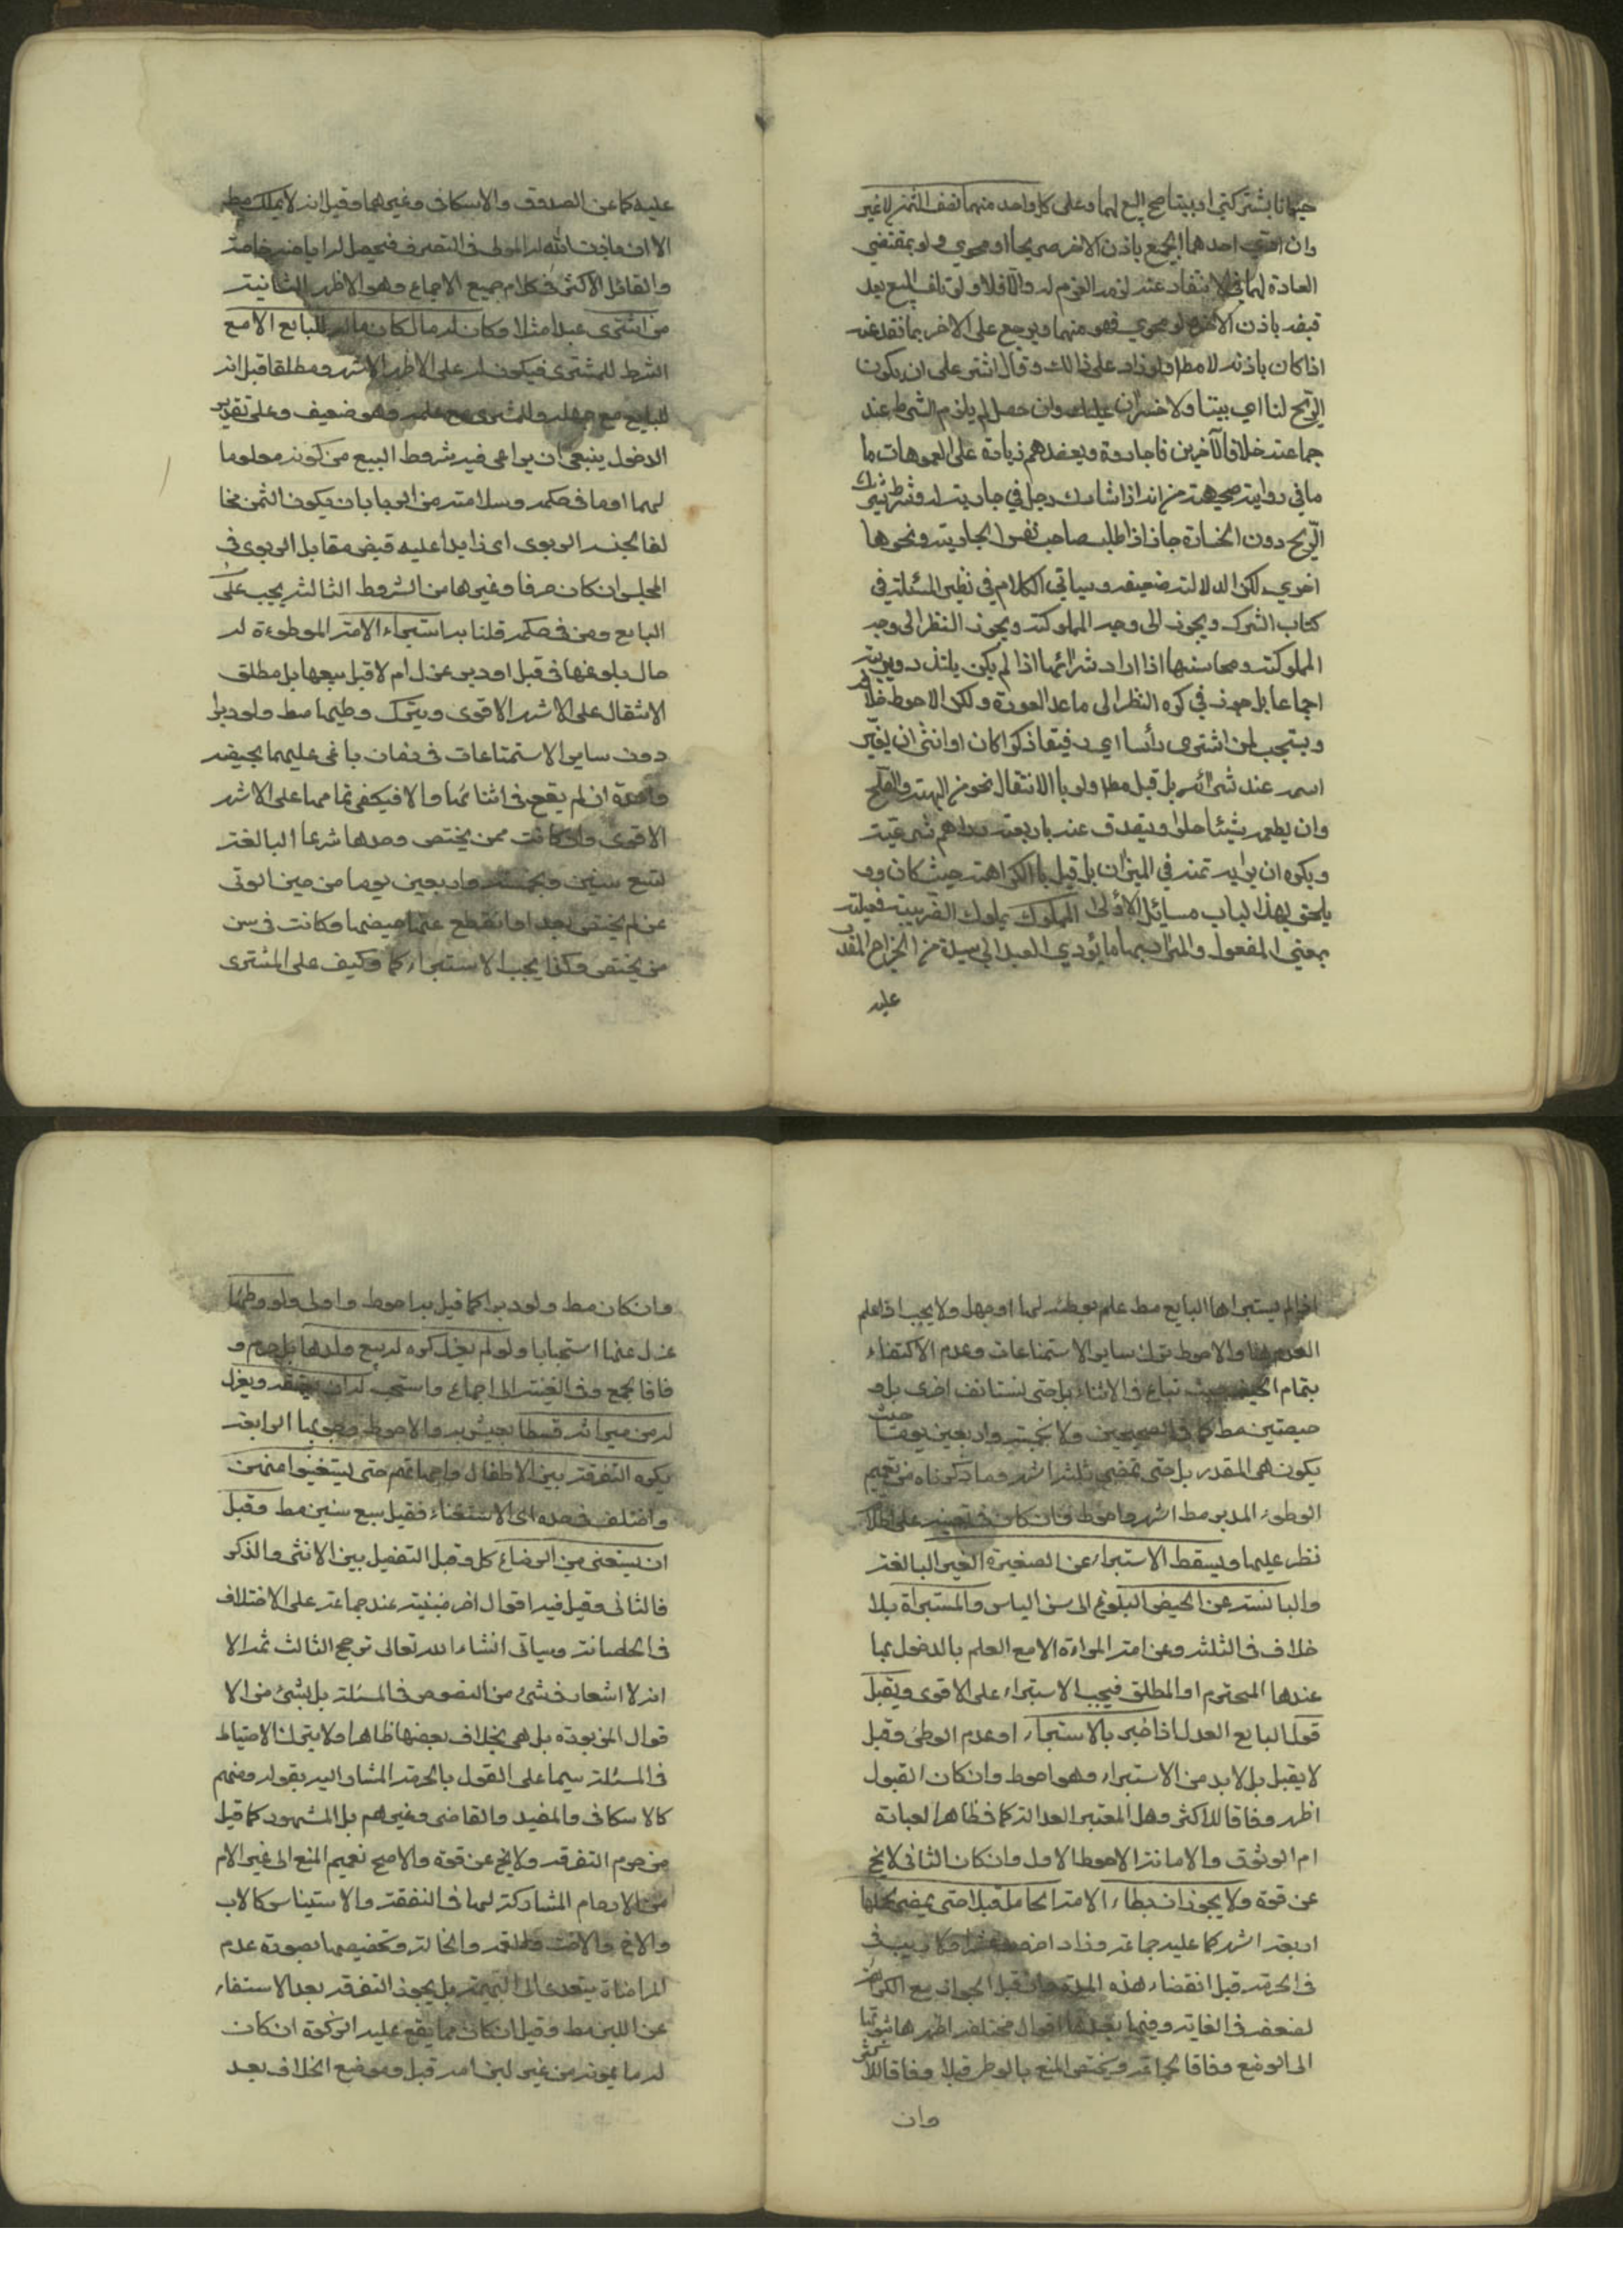 حيوانا بشركتي او بيننا صح البيع لهما وعلى كل واحد منهما نصف الثمن لا غير
وان ادى احدهما الجميع باذن الاخر صريحا او فحوي ولو بمقتضي
العادة لهما في الانتقاد عنه لزمه الغرم له والآفلا ولو تلف المبيع بعد
قبضه باذن الاخر ولو فحوي فهو منهما ويرجع على الاخر بما نقد عنه
اذا كان باذنه لا مطا ولو زاد على ذالك وقال اشتر على ان يكون
الرّبح لنا اي بيننا ولا خسران عليك وان حصل لم يلزم الشرط عند
جماعته خلافا لآخرين فاجازوه ويعضدهم زيادة على العمومات ما
ما في رواية صحيحة من انه اذا شارك رجل في جارية له وشرط شرك
الرّبح دون الخسارة جاز اذا طلبت صاحب نفس الجارية ونحوها
اخري لكن الدلالته ضعيفه وسياتي الكلام في نظير المسئلته في
كتاب الشركه ويجوز الى وجه المملوكته ويجوز النظر الى وجه
المملوكته ومحاسنها اذا اراد شرائها اذا لم يكن يلتذ
اجماعا بل جوز في كره النظر الى ما عدا العورة ولكن الاحوط خلافه
ويستحب لمن اشترى رأسا اي رقيقا ذكرا كان او انثى ان يغيّر
اسمه عند شرائه بل قيل مطا ولو باالانتقال نحو من الهبته والصلح
وان يطعمه شيئا حلوا ويتصدق عنه باربعته دراهم شرعيته
ويكره ان يريه ثمنه في الميزان بل قيل باالكراهته حيث كان وو
يلحق بهذا لباب مسائل الاولى المملوك يملوك الضريبته فعيلته
بمعني المفعول والمراد بها ما يؤدي العبد الي سيده من الخراج المقدر
عليه
عليه كما عن الصدوق والاسكافى وغيرهما وقيل انه لا يملك مطه
الا ان ماذنت لله له المولى فى التصرف فيحصل له اباحته خاصته
والقائل الاكثر فى كلام جميع الاجماع وهو الاظهر الثانيته
من اشترى عبدا مثلا وكان له مال كان ماله للبايع الا مع
الشرط للمشترى فيكون له على الاظهر الاشهر ومطلقا قيل انه
للبايع مع جهله وللمشترى مع علمه وهو ضعيف وعلى تقدير
الدخول ينبغى ان يراعى فيه شروط البيع من كونه معلوما
لهما او ما فى حكمه وسلامته من الربا بان يكون الثمن مخا
لفا لجنسه الربوى اى زايدا عليه قبض مقابل الربوى فى
المجلس ان كان صرفا وغيرها من الشروط الثالثه يجب على
البايع ومن فى حكمه قلنا به استبراء الامته الموطوءة له
حال بلوغها فى قبل او دبر عزل ام لا قبل بيعها بل مطلق
الانتقال على الاشهر الاقوى ويترك وطيها مط ولو دبرا
دون ساير الاستمتاعات فى زمان باغى عليهما بحيضه
واحدة ان لم يقع فى اثنائها والا فيكفى تمامها على الاشهر
الاقوى وان كانت ممن يختص وحدها شرعا البالغته
لتسع سنين وبخمسته واربعين يوما من حين الوتى
عن لم يختص بعد او انقطع عنها حيضها وكانت فى سن
من يختص وكذا يجب الاستبراء كما وكيف على المشترى
اذا لم يستبراها البايع مط علم بوطئه لها او جهل ولا يجب اذا علم
العدم والاحوط ترك ساير الاستمتاعات وعدم الاكتفاء
بتمام الحيض حيث تباع فى الاثناء بل حتى تستانف اخرى بل و
حيضتين مط كما فى الصحيحين ولا بخمسته واربعين يوما حيث
يكون هى المقدر بل حتى تمضى ثلثه اشهر وما ذكرناه من تعيم
الوطوء المدبر مط اشهر واحوط وان كان فى تعينه على اطلا
نظر عليها ويسقط الاستبراء عن الصغيرة الغير البالغته
واليائسته عن الحيض البلوغ الى سن الياس والمستبراة بلا
خلاف فى الثلثه وعن امته المراءة الا مع العلم بالدخول بها
عندها المحترم او المطلق فيجب الاستبراء على الاقوى ويقبل
قول البايع العدل اذا خبر بالاستبراء او عدم الوطئ وقيل
لا يقبل بل لابد من الاستبراء وهو احوط وان كان القبول
اظهر وفاقا للاكثر وهل المعتبر العدالته كما فى ظاهر العبارة
ام الوثوق والامانته الاحوط الاول وان كان الثانى لا يخ
عن قوة ولا يجوز ان يطاء الامته الحامل قبلا حتى يمضى لحملها
اربعته اشهر كما عليه جماعته وزاد اخر وعشرا ولا ريب فى
فى الحرمته قبل انقضاء هذه المدة وان قيل الجواز مع الكراهته
لضعفه فى الغايته وفيما بعدها اقوال مختلفه اظهرها ثبوتها
الى الوضع وفاقا لجماعته ويختص المنع بالوطى قبلا وفاقا للاكثر
وان
وان كان مط ولو دبرا كما قيل به احوط واولى ولو وطئها
عزل عنها استحبابا ولو لم يعزل كره له بيع ولدها بل حرم و
فاقا لجمع وفى الغنيته الى اجماع واستحب له ان يعتقه ويعزل
له من ميراثه قسطا يعيش به والاحوط وجوبها الرابعته
يكره التفرقته بين الاطفال وامهاتهم حتى يستغنوا منهن
واختلف فى حده اى الاستغناء فقيل سبع سنين مط وقيل
ان يستغنى من الرضاع كل وقيل التفصيل بين الانثى والذكر
فالثانى وقيل فيه اقوال اخر مبنيته عند جماعته على الاختلاف
فى الحضانته وسياتى انشاء الله تعالى ترجيح الثالث ثمه الا
انه لا اشعار فى شئ من النصوص فى المسئلته بل بشئ من الا
قوال المزبوره بل هى بخلاف بعضها ظاهرا ولا يترك الاحتياط
فى المسئلته سيما على القول بالحرمته المشار اليه بقوله ومنهم
كالاسكافى والمفيد والقاضى وغيرهم بل المشهور كما قيل
من حرم التفرقه ولا يخ عن قوة والاصح تعميم المنع الى غير الام
من الارحام المشاركته لها فى النفقته والاستيناس كالاب
والاخ والاخت والعمته والخالته وتخصيصها بصورة عدم
المراضاة يتعدى الى البهيمته بل يجوز التفرقه بعد الاستغناء
عن اللبن مط وقيل ان كان مما يقع عليه الزكوة ان كان
له ما يمونه من غير لبن امه قيل وموضع الخلاف بعد